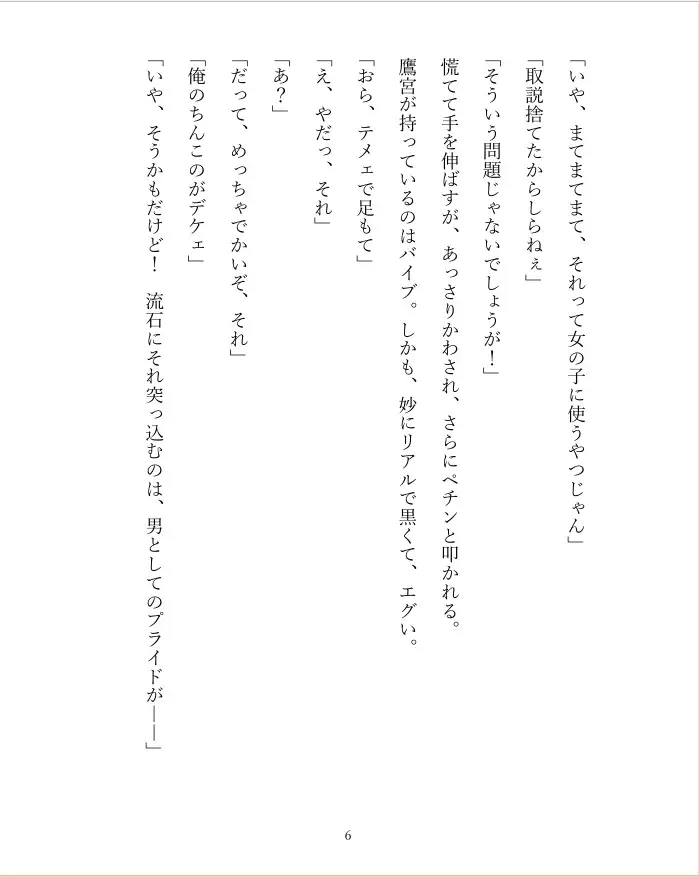 「いや、まてまてまて、それって女の子に使うやつじゃん」
「取説捨てたからしらねぇ」
「そういう問題じゃないでしょうが！」
慌てて手を伸ばすが、あっさりかわされ、さらにペチンと叩かれる。
鷹宮が持っているのはバイブ。しかも、妙にリアルで黒くて、エグい。
「おら、テメェで足もて」
「え、やだっ、それ」
「あ？」
「だって、めっちゃでかいぞ、それ」
「俺のちんこのがデケェ」
「いや、そうかもだけど！　流石にそれ突っ込むのは、男としてのプライドが――」
6